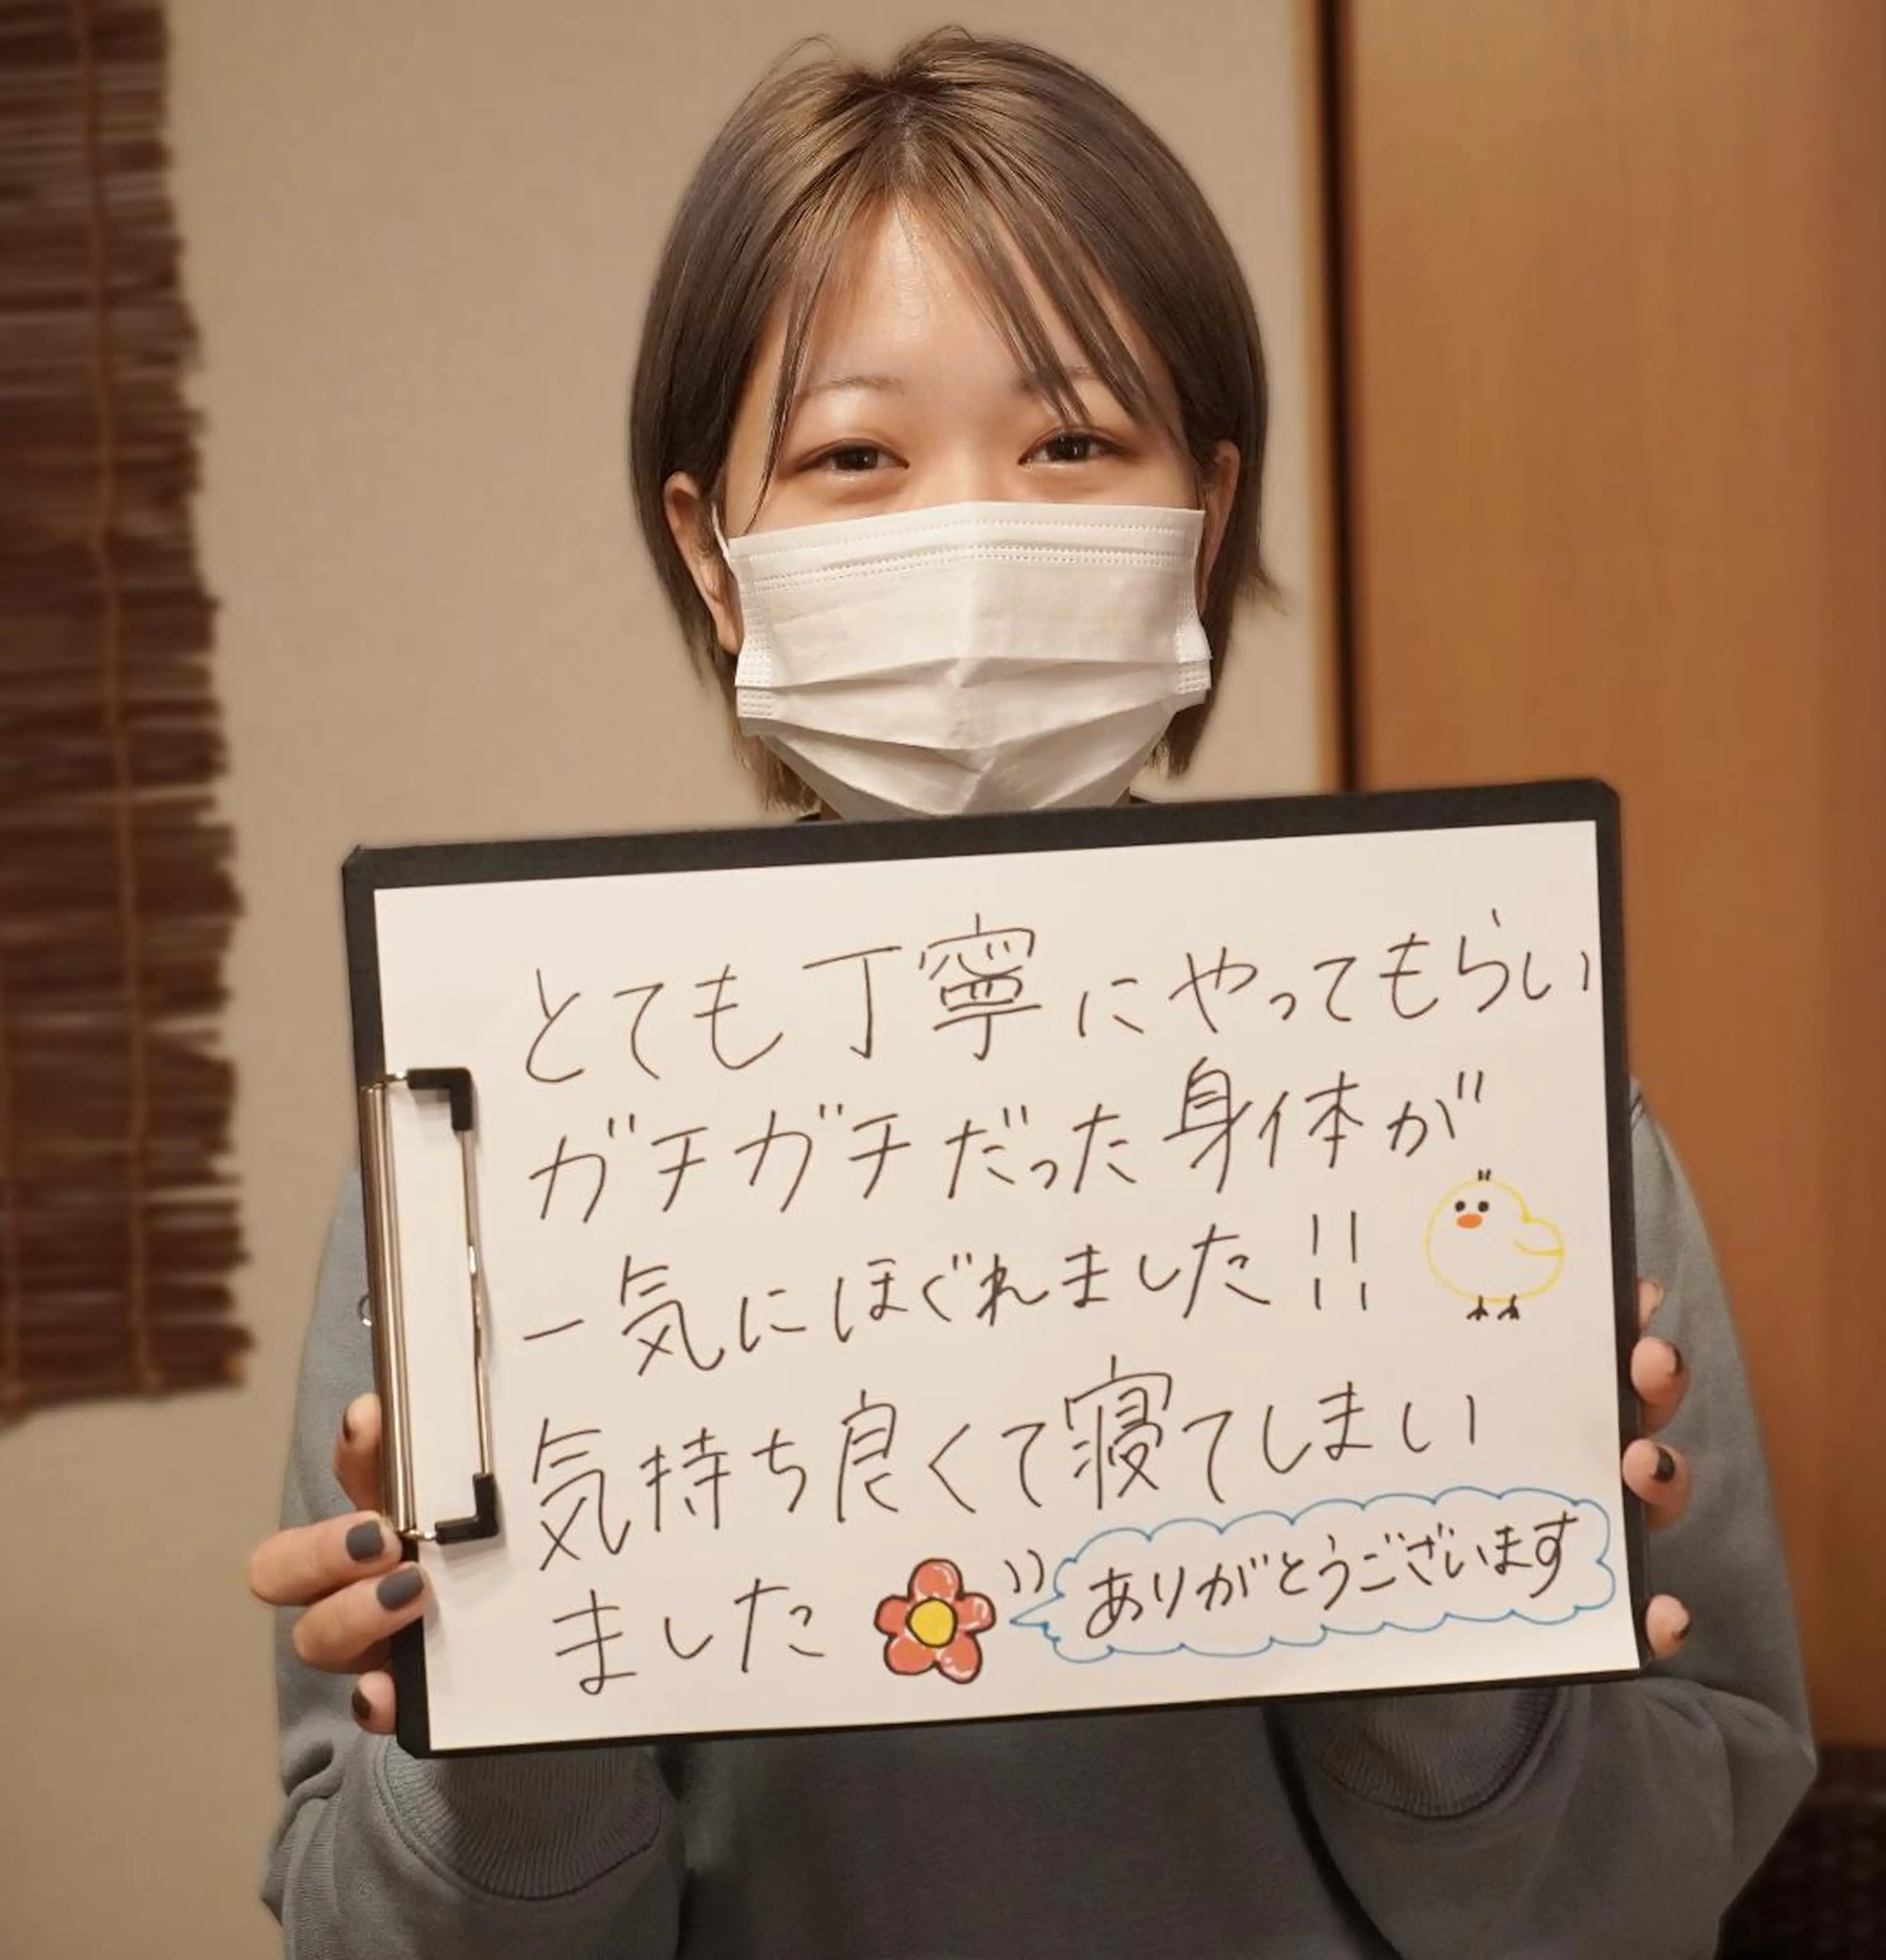 とても丁寧にやってもらい
ガチガチだった身体が
一気にほぐれました!!
気持ち良くて寝てしまい
ました
ありがとうございます